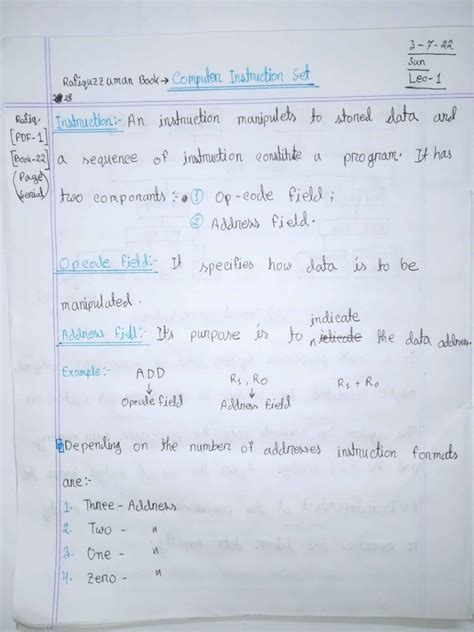 3-7-22
Sun
Lec-1
Rafiquzzaman Book → Computer Instruction Set
Rafiq.
[PDF-1]
[Book-22]
(Page Serial)
Instruction:- An instruction manipulets to stored data and
a sequence of instruction constitute a program. It has
two componants :- ① Op-code field ;
② Address field.
Opcode field:- It specifies how data is to be
manipulated.
indicate
Address field:- It's purpose is to the data address.
Example:- ADD R₁, R₀ R₁ + R₀
↓ ↓
Opcode field Address field
Depending on the number of addresses instruction formats
are:-
1. Three - Address
2. Two - "
3. One - "
4. Zero - "